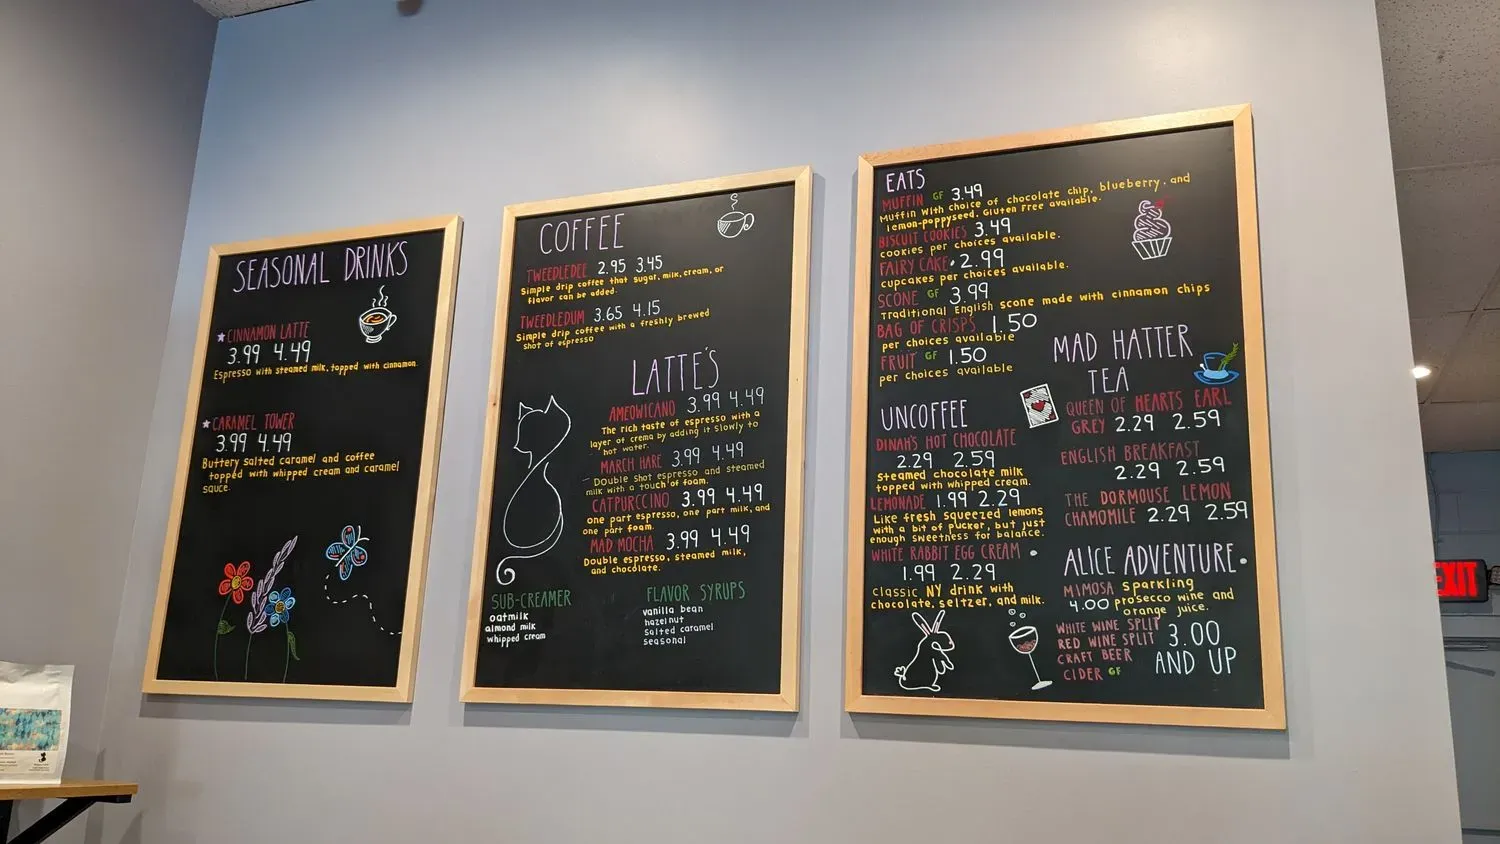 SEASONAL DRINKS
CINNAMON LATTE
3.99 4.49
Espresso with steamed milk, topped with cinnamon.
CARAMEL TOWER
3.99 4.49
Buttery salted caramel and coffee
topped with whipped cream and caramel
sauce.
COFFEE
TWEEDLEDEE 2.95 3.45
Simple drip coffee that sugar, milk, cream, or
flavor can be added.
TWEEDLEDUM 3.65 4.15
Simple drip coffee with a freshly brewed
shot of espresso
LATTE'S
AMEOWICANO 3.99 4.49
The rich taste of espresso with a
layer of crema by adding it slowly to
hot water.
MARCH HARE 3.99 4.49
Double shot espresso and steamed
milk with a touch of foam.
CATPURCCINO 3.99 4.49
one part espresso, one part milk, and
one part foam.
MAD MOCHA 3.99 4.49
Double espresso, steamed milk,
and chocolate.
SUB-CREAMER
oatmilk
almond milk
whipped cream
FLAVOR SYRUPS
vanilla bean
hazelnut
salted caramel
seasonal
EATS
MUFFIN GF 3.49
Muffin with choice of chocolate chip, blueberry, and
lemon-poppyseed. Gluten Free available.
BISCUIT COOKIES 3.49
cookies per choices available.
FAIRY CAKE • 2.99
cupcakes per choices available.
SCONE GF 3.99
Traditional English scone made with cinnamon chips
BAG OF CRISPS 1.50
per choices available
FRUIT GF 1.50
per choices available
UNCOFFEE
DINAH'S HOT CHOCOLATE
2.29 2.59
steamed chocolate milk
topped with whipped cream.
LEMONADE 1.99 2.29
Like fresh squeezed lemons
with a bit of pucker, but just
enough sweetness for balance.
WHITE RABBIT EGG CREAM •
1.99 2.29
Classic NY drink with
chocolate, seltzer, and milk.
MAD HATTER
TEA
QUEEN OF HEARTS EARL
GREY 2.29 2.59
ENGLISH BREAKFAST
2.29 2.59
THE DORMOUSE LEMON
CHAMOMILE 2.29 2.59
ALICE ADVENTURE •
MIMOSA sparkling
4.00 prosecco wine and
orange juice.
WHITE WINE SPLIT
RED WINE SPLIT
CRAFT BEER
CIDER GF
3.00
AND UP
EXIT